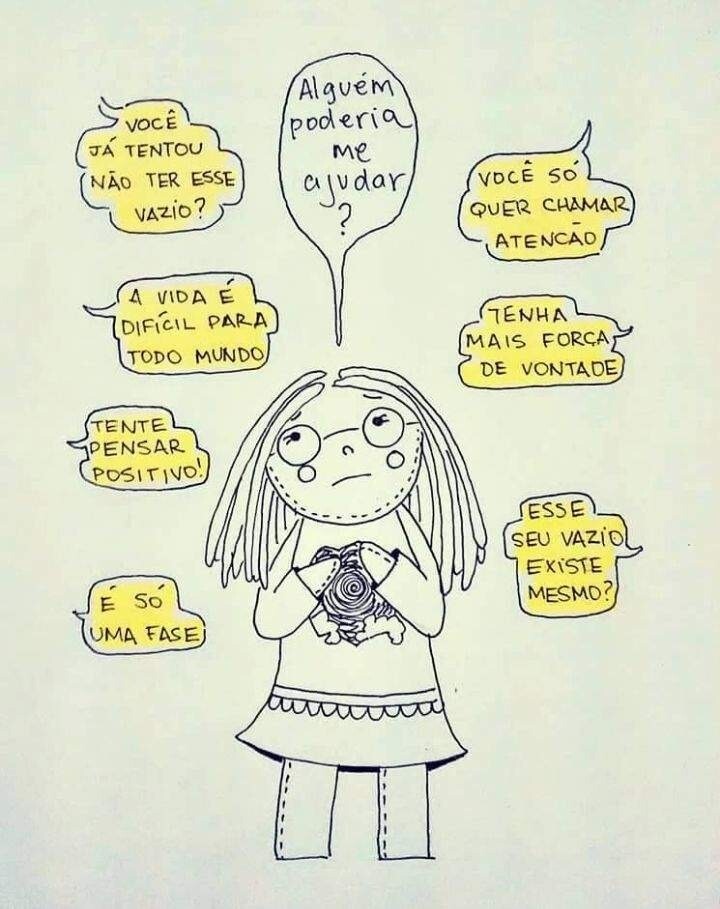 Alguém
poderia
me
ajudar
?
VOCÊ
JÁ TENTOU
NÃO TER ESSE
VAZIO?
VOCÊ SÓ
QUER CHAMAR
ATENCÃO
A VIDA É
DIFÍCIL PARA
TODO MUNDO
TENHA
MAIS FORÇA
DE VONTADE
TENTE
PENSAR
POSITIVO!
ESSE
SEU VAZIO
EXISTE
MESMO?
É SÓ
UMA FASE